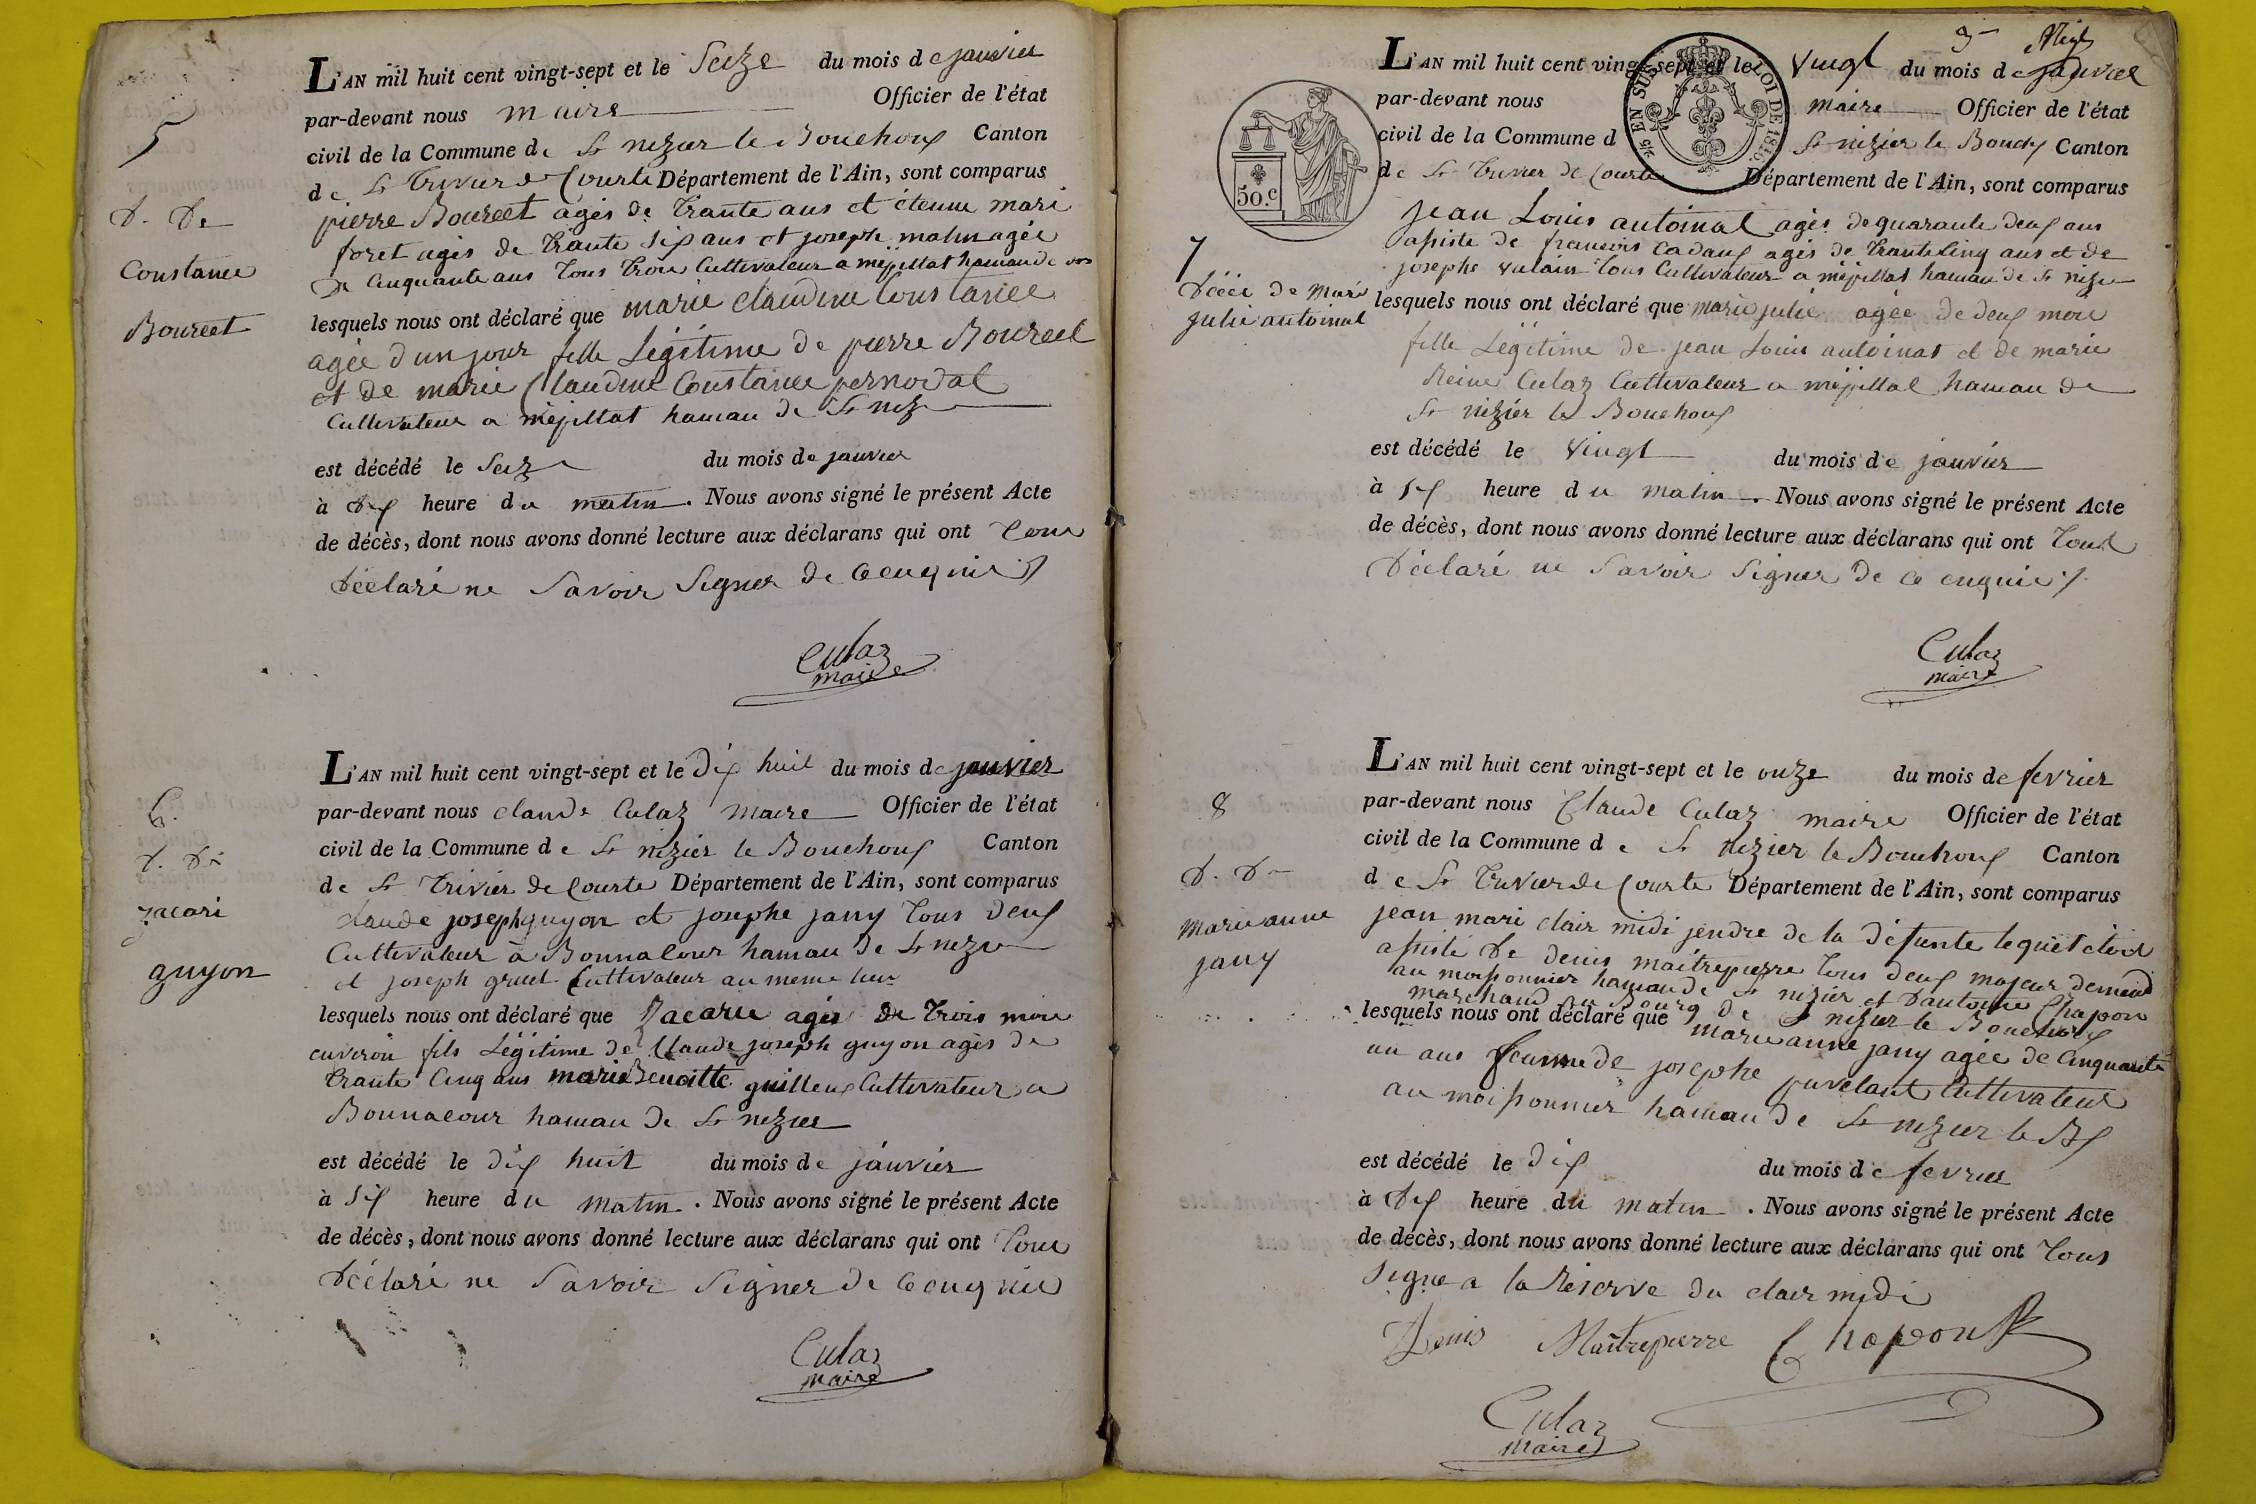 5
D. De
Constance
Bourcet
L'AN mil huit cent vingt-sept et le Seize du mois de janvier
par-devant nous maire Officier de l'état
civil de la Commune de St nizier le Bouchoux Canton
de St Trivier de Courte Département de l'Ain, sont comparus
pierre Bourcet agés de trante ans et étenne mari
foret agés de trante six ans et joseph mahn agée
De Cinquante ans tous trois Cultivateur a mépillat hamau de
lesquels nous ont déclaré que marie claudine Constance
agée d'un jour fille Légitime de pierre Bourcet
et de marie Claudine Constance pernodat
Cultivateur a mépillat hamau de St niz
est décédé le Seize du mois de janvier
à dix heure du matin. Nous avons signé le présent Acte
de décès, dont nous avons donné lecture aux déclarans qui ont tous
Déclaré ne Savoir Signer de ce enquis
Culaz
maire
6.
D. De
zacari
guyon
L'AN mil huit cent vingt-sept et le Dix huit du mois de janvier
par-devant nous claude Culaz maire Officier de l'état
civil de la Commune de St nizier le Bouchoux Canton
de St Trivier de Courte Département de l'Ain, sont comparus
claude joseph guyon et josephe jany tous deux
Cultivateur à Bonnacour hamau de St nizie
et joseph gruet Cultivateur au meme lieu
lesquels nous ont déclaré que Zacarie agés de trois mois
environ fils Légitime de Claude joseph guyon agés de
trante Cinq ans marie Benoitte guilleux Cultivateur a
Bonnacour hamau de St nizier
est décédé le dix huit du mois de janvier
à six heure du matin. Nous avons signé le présent Acte
de décès, dont nous avons donné lecture aux déclarans qui ont tous
Déclaré ne Savoir Signer de ce enquis
Culaz
maire
L'AN mil huit cent vingt-sept et le vingt du mois de janvier
par-devant nous maire Officier de l'état
civil de la Commune d St nizier le Boucx Canton
de St Trivier de Courte Département de l'Ain, sont comparus
EN SUS
LOI DE 1816.
50.c
jean Louis antoinat agés de quarante deux ans
assiste de francois cadaux agés de trante Cinq ans et de
josephe vulain tous Cultivateur a mépillat hamau de St nizie
7
Décé de Mari
julie antoinat
lesquels nous ont déclaré que marie julie agée de deux mois
fille Légitime de jean Louis antoinat et de marie
Reine Culaz Cultivateur a mépillat hamau de
St nizier le Bouchoux
est décédé le vingt du mois de janvier
à six heure du matin. Nous avons signé le présent Acte
de décès, dont nous avons donné lecture aux déclarans qui ont tous
Déclaré ne Savoir Signer de ce enquis
Culaz
maire
8
D. De
Marie anne
jany
L'AN mil huit cent vingt-sept et le onze du mois de fevrier
par-devant nous Claude Culaz maire Officier de l'état
civil de la Commune de St nizier le Bouchoux Canton
de St Trivier de Courte Département de l'Ain, sont comparus
jean mari clair midi jendre de la défunte lequel étoit
assité De denis maitrepierre tous deux majeur demeud
au moissonnier hamau de St nizier et d'antoine Chapon
marchand au Bourg de St nizier le Bouchoux
lesquels nous ont déclaré que marie anne jany agée de Cinquante
un ans femme de josephe puvelant Cultivateur
au moissonnier hamau de St nizier le Bx
est décédé le dix du mois de fevrier
à dix heure du matin. Nous avons signé le présent Acte
de décès, dont nous avons donné lecture aux déclarans qui ont tous
Signe a la Réserve du clair midi
Denis Maitrepierre Chapon
Culaz
maire